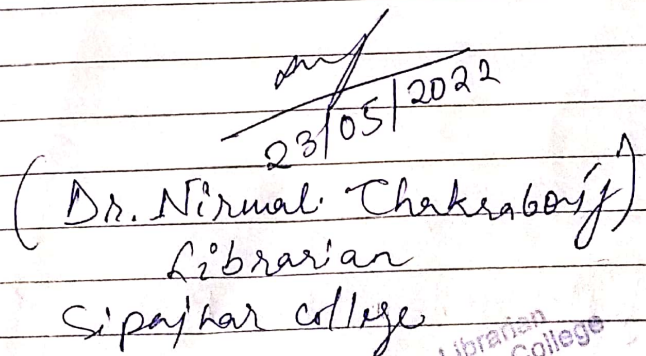 23/05/2022
(Dr. Nirmal Chakraborty)
Librarian
Sipajhar college
Librarian
College